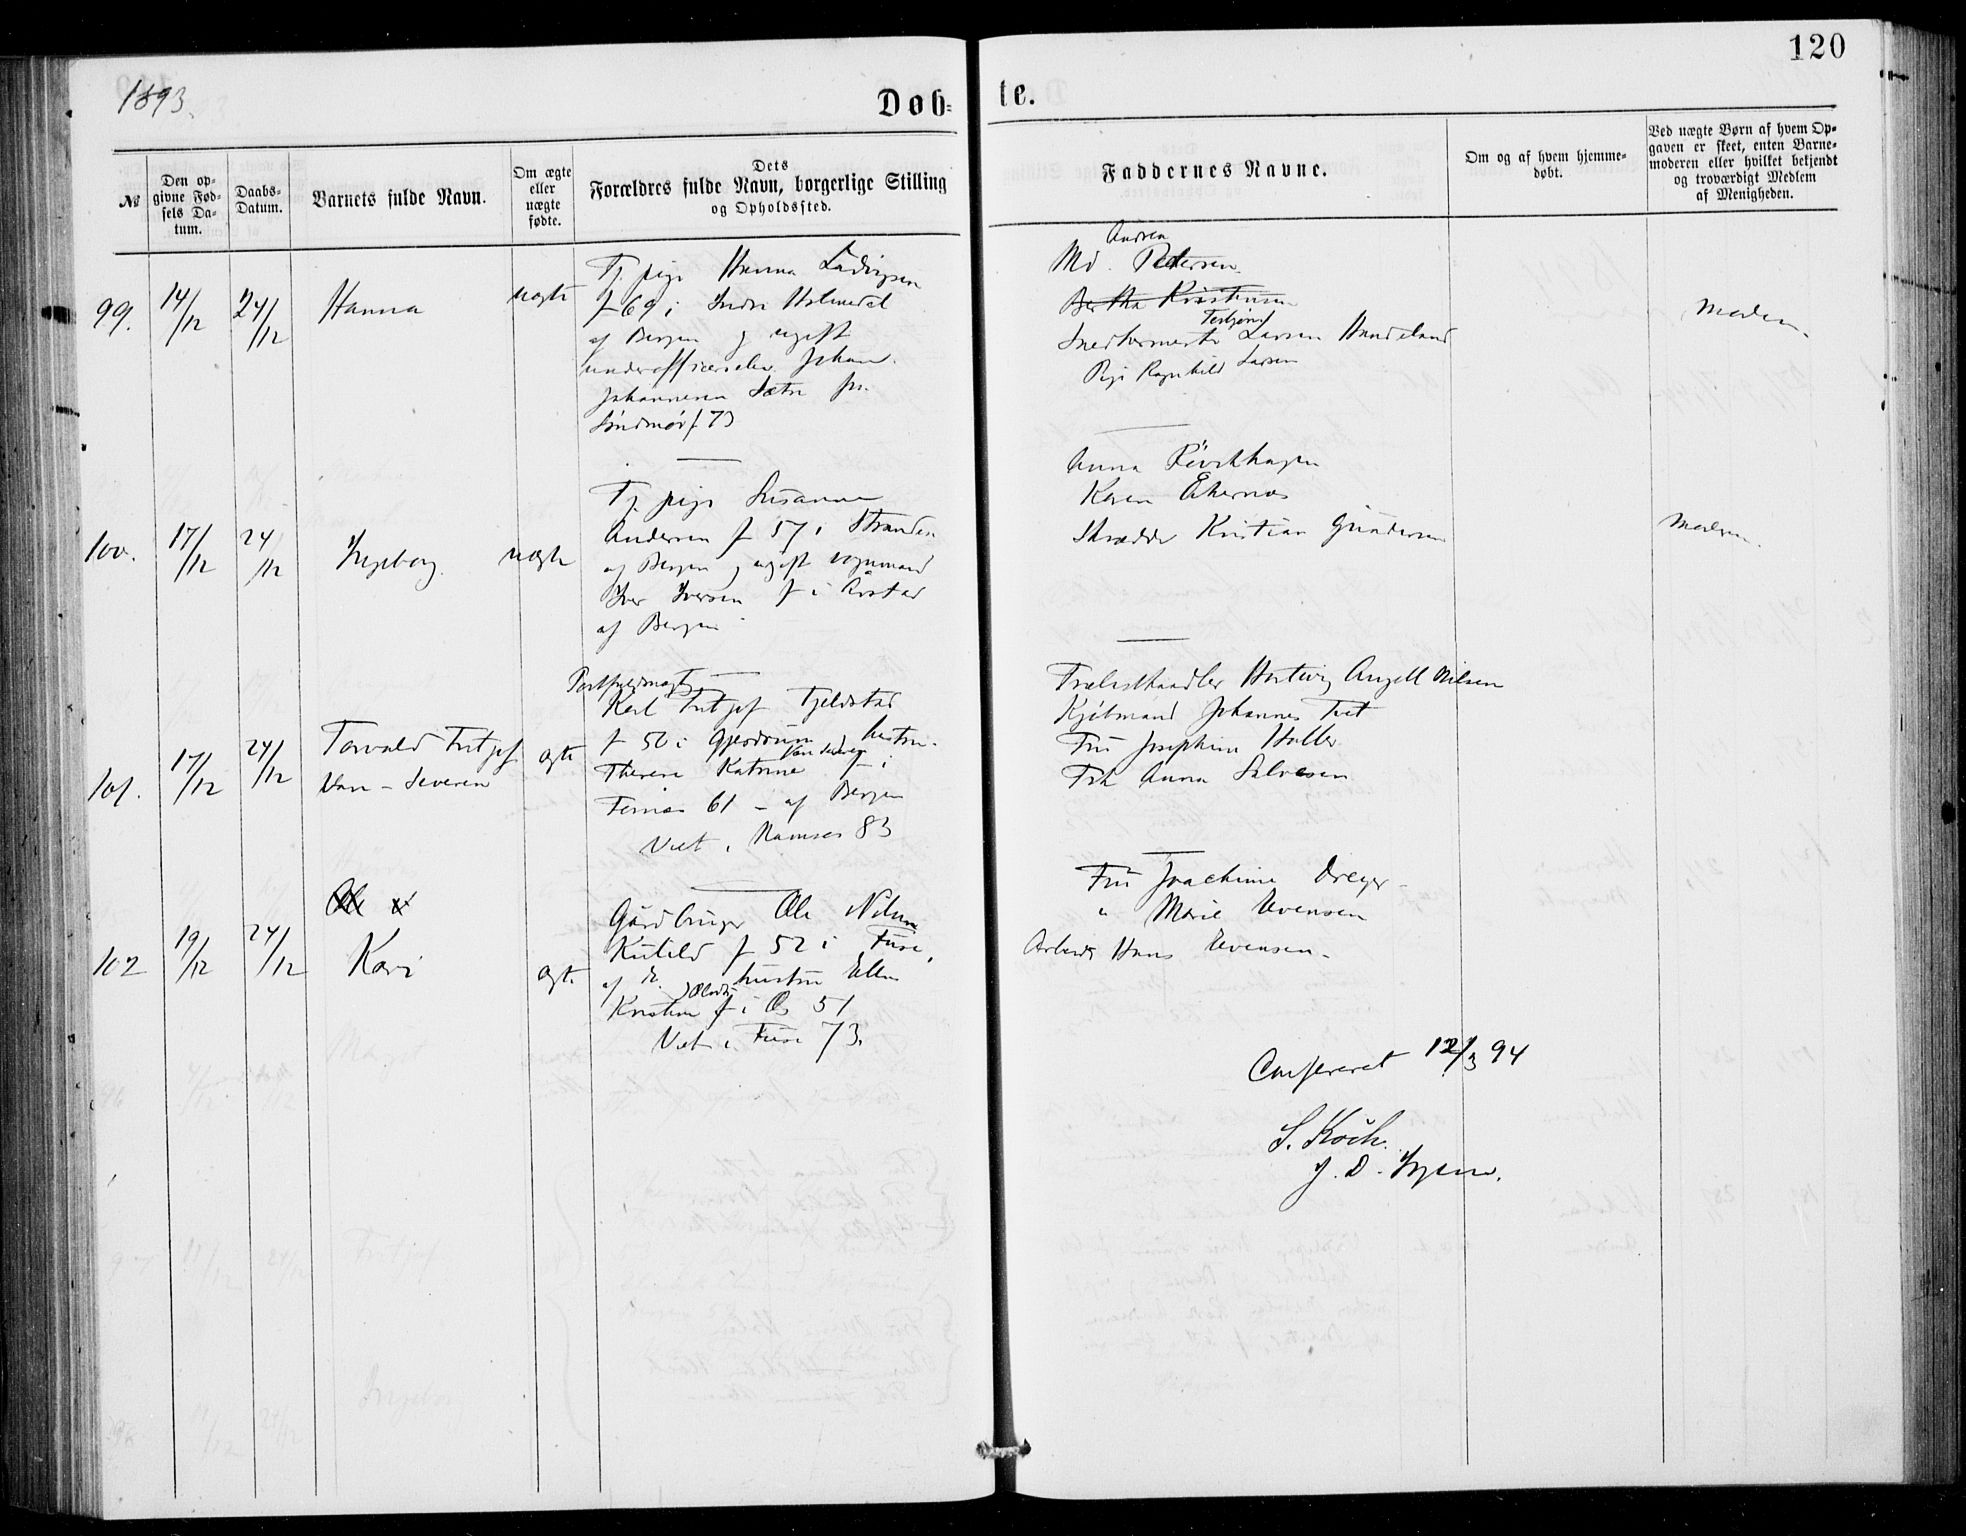 1893.
120
Døb=
te.
№
Den op-
givne Fød-
sels Da-
tum.
Daabs-
Datum.
Barnets fulde Navn.
Om ægte
eller
uægte
fødte.
Dets
Forældres fulde Navn, borgerlige Stilling
og Opholdssted.
Faddernes Navne.
Om og af hvem hjemme-
døbt.
Ved uægte Børn af hvem Op-
gaven er skeet, enten Barne-
moderen eller hvilket bekjendt
og troværdigt Medlem
af Menigheden.
99.
14/12
24/12
Hanna
uægte
Tj. pige Hanna
f 69 i Indre Holmedal
af Bergen g ugift
underofficerselev Johan
Johannesen Sætre fr.
Søndmør f 73
Andrea
Md. Petersen
Bertha Kristensen
Torbjørn
Snedkermester Larsen Handeland
Pige Ragnhild Larsen
Moderen.
100.
17/12
24/12
Ingeborg
uægte
Tj. pige Susanna
Andersen f 57 i Stranden
af Bergen g ugift vognmand
Iver Iversen f i Årstad
af Bergen
Anna
Karen Ekernæs
Skrædder Kristian Gundersen
Moderen.
101.
17/12
24/12
Torvald Fritjof
Van-Severen
ægte
Postfuldmægtig
Karl Fritjof Fjeldstad
f 50 i Gjerdrum g hustru
Van Severen
Therese Katrine f i
61 - af Bergen
Viet i Namsos 83
Trælasthandler Hartvig Angell Nilsen
Kjøbmand Johannes
Fru Josephine Haller
Frk Anna Salvesen
102
19/12
24/12
Ole
Kari
ægte
Gårdbruger Ole Nilsen
f 52 i Fuse,
af B. hustru Ellen
Kristine f i Os 51
Viet i Fuse 73.
Fru Joachime Dreyer
" Marie Evensen
Arbeider Hans Evensen.
Confereret 12/3 94
S. Koch.
J. D.